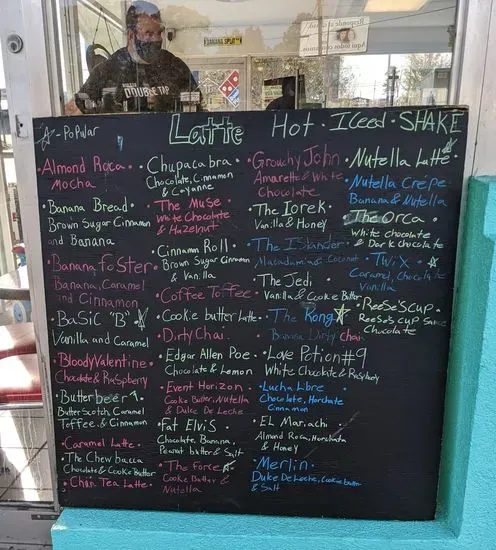 Responde al
BANANA SPLIT
DOUBLE TAP
☆-Popular
Latte Hot·Iced·SHAKE
·Almond Roca
Mocha
·Banana Bread·
Brown Sugar Cinnamon
and Banana
·Banana foSter
Banana, Caramel
and Cinnamon
·BaSiC "B"☆
Vanilla and Caramel
·BloodyValentine
Chocolate & Raspberry
·Butter beer
ButterScotch, Caramel
Toffee & Cinnamon
·Caramel Latte·
·The Chewbacca
Chocolate & Cookie Butter
·Chai Tea Latte·
·Chupacabra·
Chocolate, Cinnamon
& Cayanne
·The Muse·
White Chocolate
& Hazelnut
·Cinnamon Roll·
Brown Sugar Cinnamon
& Vanilla
·Coffee Toffee·
·Cookie butter Latte·
·Dirty Chai·
·Edgar Allen Poe·
Chocolate & Lemon
·Event Horizon
Cookie Butter, Nutella
& Dulce De Leche
·Fat Elvis·
Chocolate, Banana,
Peanut butter & Salt
·The Force☆
Cookie Butter &
Nutella
·Grouchy John·
Amaretto & White
Chocolate
·The Iorek·
Vanilla & Honey
·The Islander
Macadamia & Coconut
·The Jedi·
Vanilla & Cookie Butter
·The Kong☆
Banana Dirty chai
·Love Potion #9·
White Chocolate & Raspberry
·Lucha Libre·
Chocolate, Horchata
Cinnamon
·EL Mariachi·
Almond Roca, Horchata
& Honey
·Merlin·
Duke De Leche, Cookie butter
& Salt
·Nutella Latte·☆
·Nutella Crepe·
Banana & Nutella
·The Orca·
White chocolate
& Dark chocolate
·Twix·
Caramel, Chocolate
Vanilla
·ReeSe'S Cup·
ReeSe's cup Sauce
Chocolate